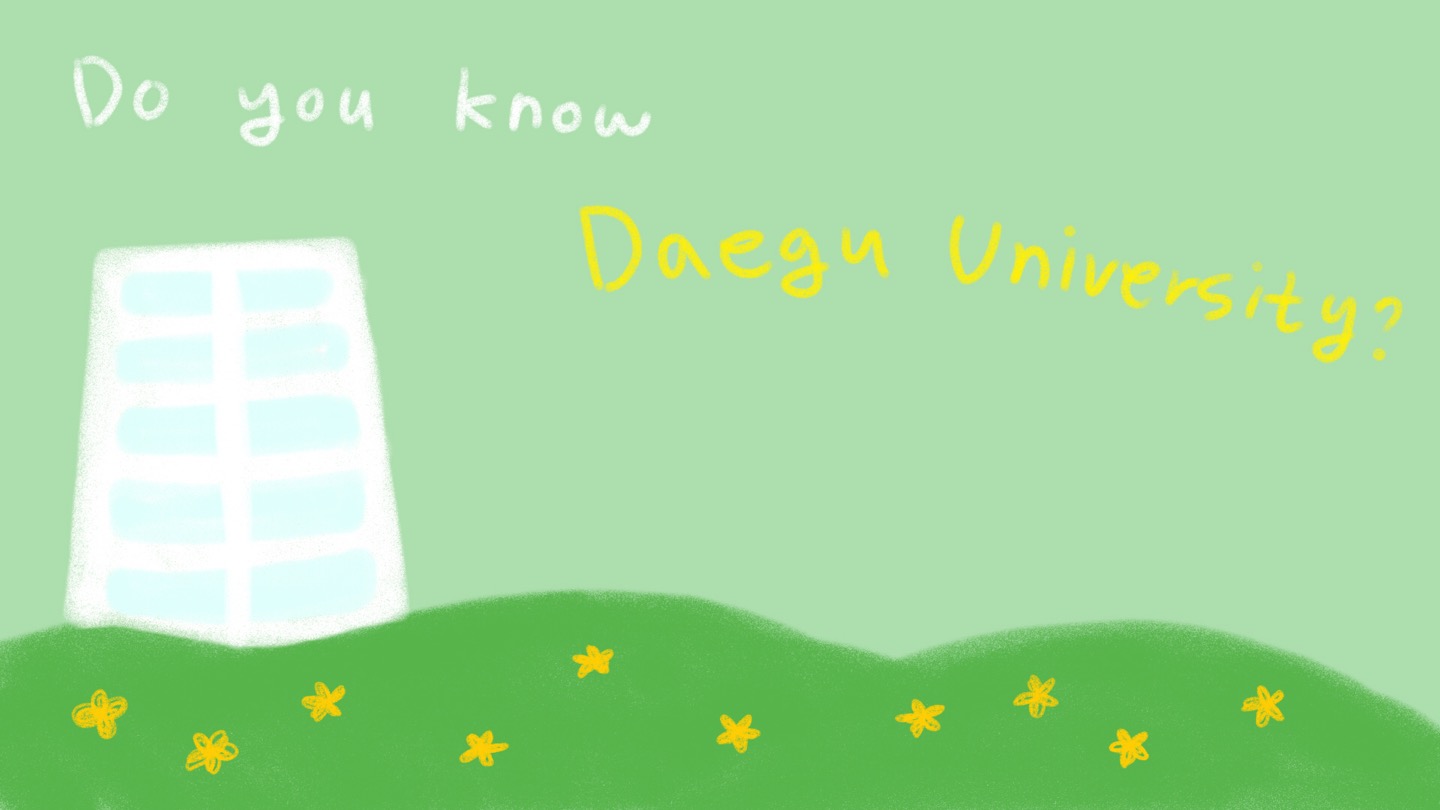 Do you know
Daegu University?